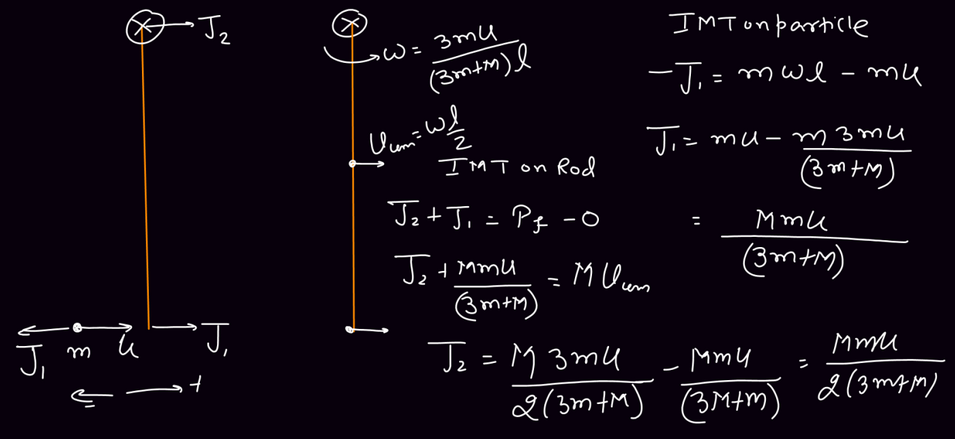 J₂
J₁ m u J₁
+
ω = 3mu/(3m+M)l
v_cm = ωl/2
IMT on Rod
J₂ + J₁ = P_f − 0
J₂ + Mmu/(3m+M) = M v_cm
J₂ = M 3mu/2(3m+M) − Mmu/(3M+m) = Mmu/2(3m+M)
IMT on particle
−J₁ = mωl − mu
J₁ = mu − m 3mu/(3m+M)
= Mmu/(3m+M)